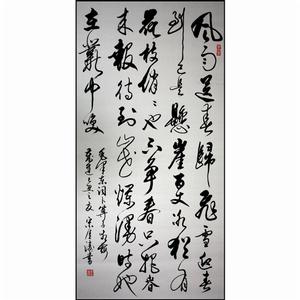 風雨送春歸飛雪迎春
到已是懸崖百丈冰猶有
花枝俏俏也不争春只把春
来報待到山花爛漫時她
在叢中笑
毛澤東詞卜算子咏梅
宋書